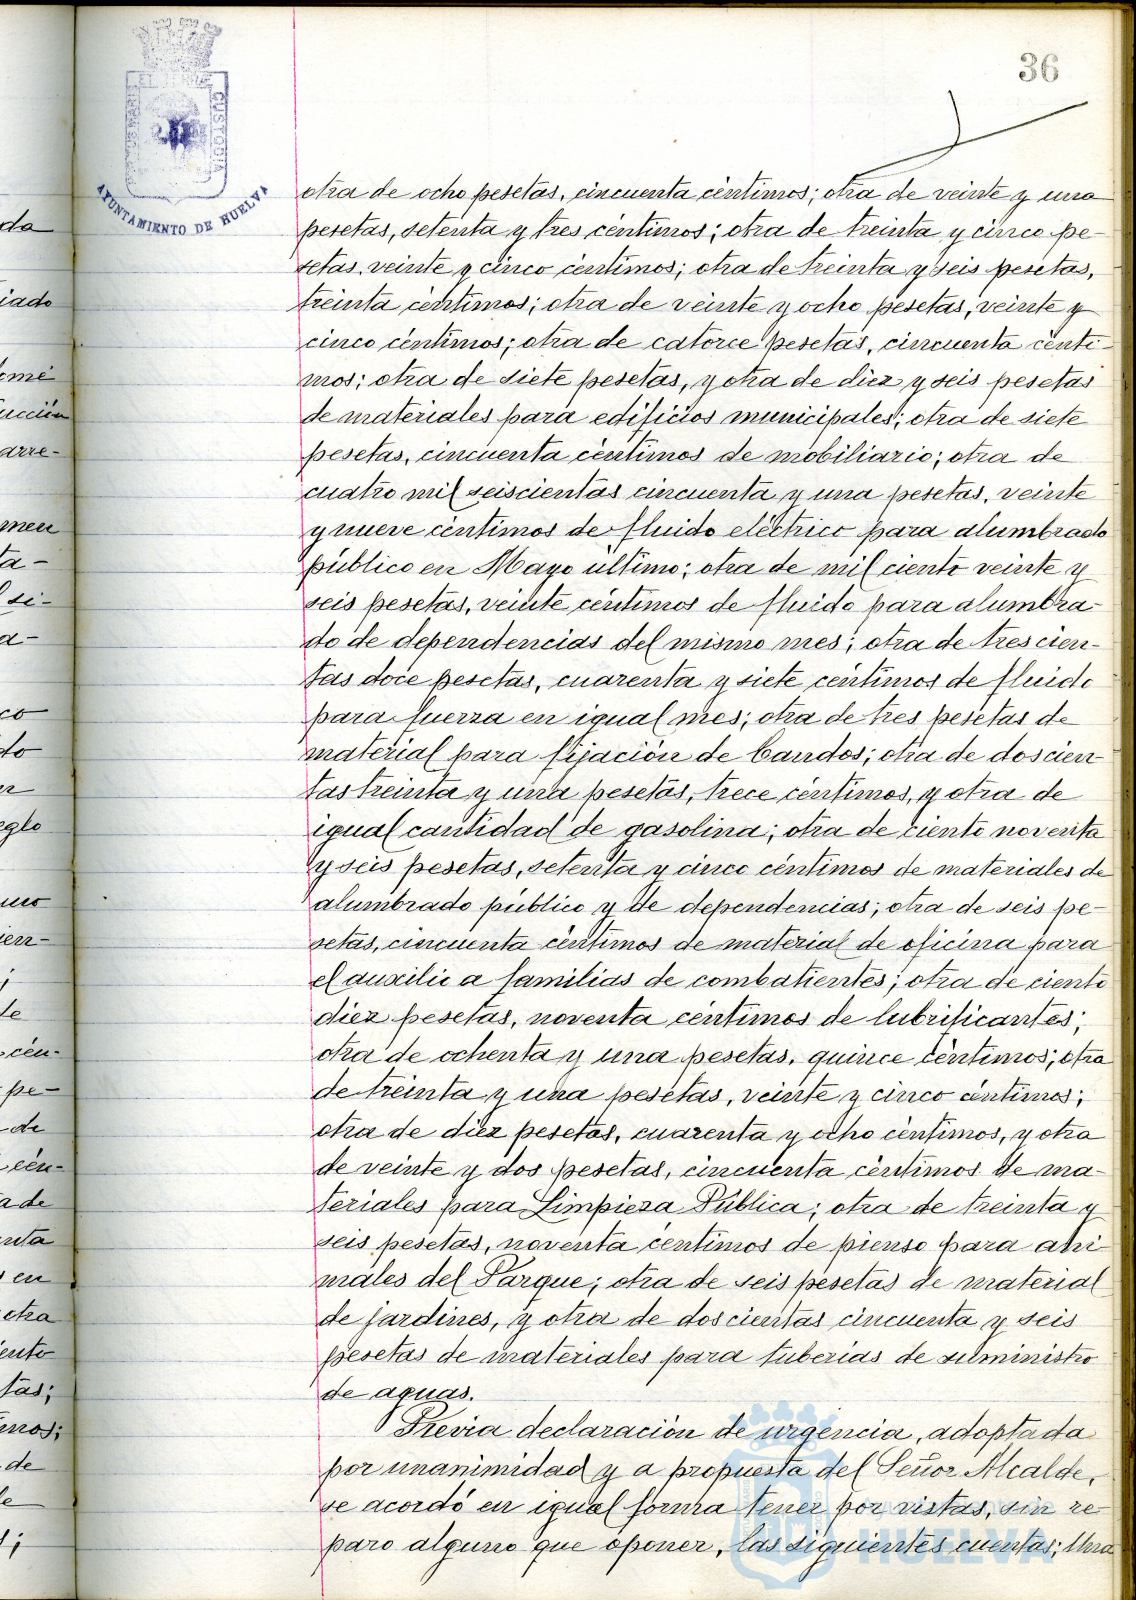 36
EL PUERTO CUSTODIA
AYUNTAMIENTO DE HUELVA
otra de ocho pesetas, cincuenta céntimos; otra de veinte y una
pesetas, setenta y tres céntimos; otra de treinta y cinco pe-
setas, veinte y cinco céntimos; otra de treinta y seis pesetas,
treinta céntimos; otra de veinte y ocho pesetas, veinte y
cinco céntimos; otra de catorce pesetas, cincuenta cénti-
mos; otra de siete pesetas, y otra de diez y seis pesetas
de materiales para edificios municipales; otra de siete
pesetas, cincuenta céntimos de mobiliario; otra de
cuatro mil seiscientas cincuenta y una pesetas, veinte
y nueve céntimos de fluido eléctrico para alumbrado
público en Mayo último; otra de mil ciento veinte y
seis pesetas, veinte céntimos de fluido para alumbra-
do de dependencias del mismo mes; otra de trescien-
tas doce pesetas, cuarenta y siete céntimos de fluido
para fuerza en igual mes; otra de tres pesetas de
material para fijación de bandos; otra de doscien-
tas treinta y una pesetas, trece céntimos, y otra de
igual cantidad de gasolina; otra de ciento noventa
y seis pesetas, setenta y cinco céntimos de materiales de
alumbrado público y de dependencias; otra de seis pe-
setas, cincuenta céntimos de material de oficina para
el auxilio a familias de combatientes; otra de ciento
diez pesetas, noventa céntimos de lubrificantes;
otra de ochenta y una pesetas, quince céntimos; otra
de treinta y una pesetas, veinte y cinco céntimos;
otra de diez pesetas, cuarenta y ocho céntimos, y otra
de veinte y dos pesetas, cincuenta céntimos de ma-
teriales para Limpieza Pública; otra de treinta y
seis pesetas, noventa céntimos de pienso para ani-
males del Parque; otra de seis pesetas de material
de jardines, y otra de doscientas cincuenta y seis
pesetas de materiales para tuberías de suministro
de aguas.
Previa declaración de urgencia, adoptada
por unanimidad y a propuesta del Señor Alcalde,
se acordó en igual forma tener por vistas, sin re-
paro alguno que oponer, las siguientes cuentas; Una
HUELVA